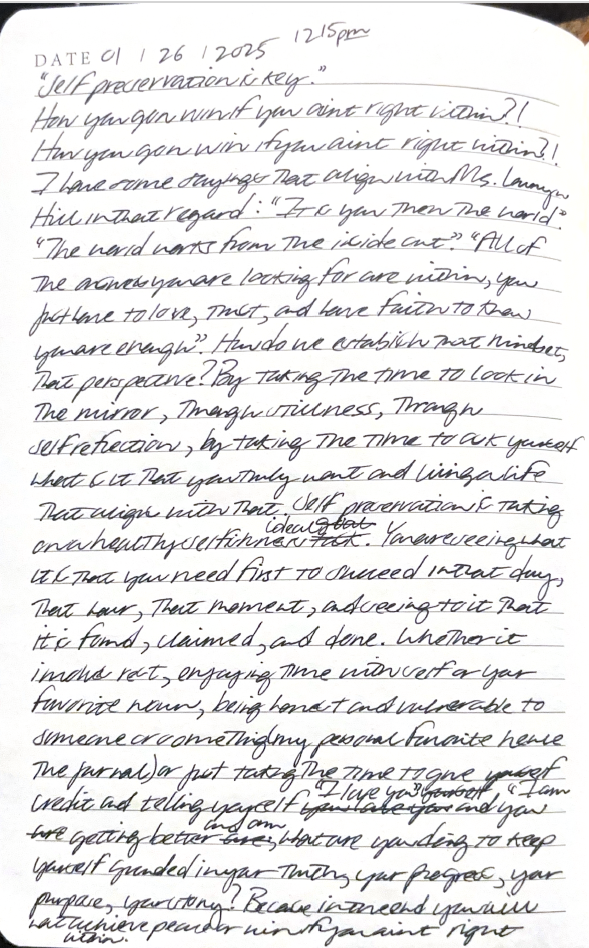 12:15pm
DATE 01 | 26 | 2025
"Self preservation is key."
How you gon win if you aint right within?!
How you gon win if you aint right within?!
I have some sayings that align with Ms. Lauryn
Hill in that regard: "It is you then the world."
"The world works from the inside out". "All of
the answers you are looking for are within, you
just have to love, trust, and have faith to know
you are enough". How do we establish that mindset,
that perspective? By taking the time to look in
the mirror, through stillness, through
self reflection, by taking the time to ask yourself
what is it that you truly want and living a life
that align with that. Self preservation is taking
ideal goal
on a healthy selfishness task. You are seeing what
it is that you need first to succeed in that day,
that hour, that moment, and seeing to it that
it is found, claimed, and done. Whether it
involves rest, enjoying time with self or your
favorite noun, being honest and vulnerable to
someone or something(my personal favorite hence
the journal) or just taking the time to give yourself
"I love you" yourself, "I am
credit and telling yourself you love you and you
and am
are getting better are, what are you doing to keep
yourself grounded in your truth, your progress, your
purpose, your story? Because in the end you will
not achieve peace or win if you aint right
within.